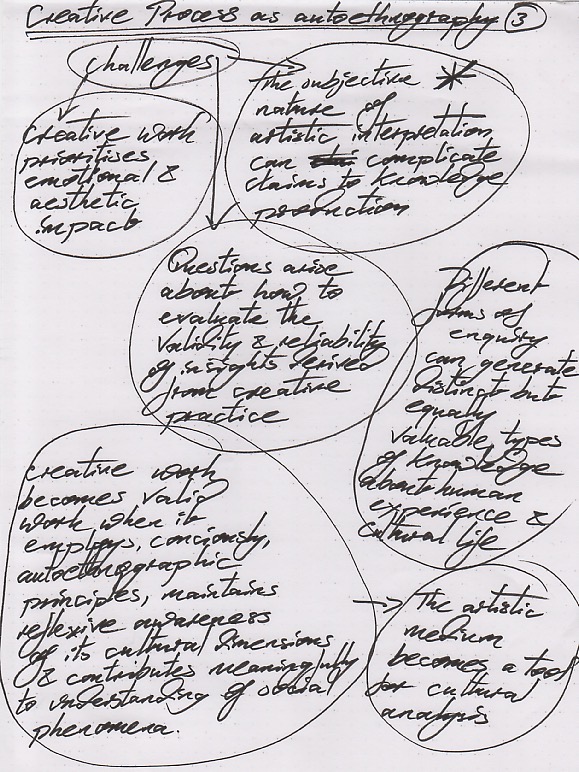 Creative Process as autoethnography 3
challenges
Creative work
prioritises
emotional &
aesthetic
impact
The subjective *
nature of
artistic interpretation
can complicate
claims to knowledge
production
Questions arise
about how to
evaluate the
validity & reliability
of insights derived
from creative
practice
Different
forms of
enquiry
can generate
distinct but
equaly
valuable types
of knowledge
about human
experience &
cultural life
Creative work
becomes valid
work when it
employs, conciously,
autoethnographic
principles, maintains
reflexive awareness
of its cultural dimensions
& contributes meaningfully
to understanding of social
phenomena.
The artistic
medium
becomes a tool
for cultural
analysis